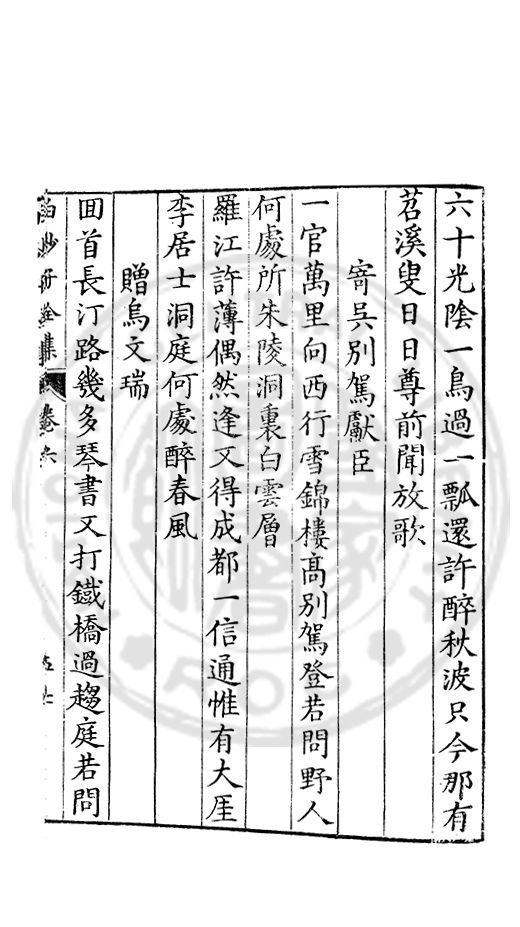 六十光陰一鳥過一瓢還許醉秋波只今那有
苕溪叟日日尊前聞放歌
寄吳別駕獻臣
一官萬里向西行雪錦樓高別駕登若問野人
何處所朱陵洞裏白雲層
羅江許薄偶然逢又得成都一信通惟有大厓
李居士洞庭何處醉春風
贈烏文瑞
囬首長汀路幾多琴書又打鐵橋過趨庭若問
白沙子全集 卷六